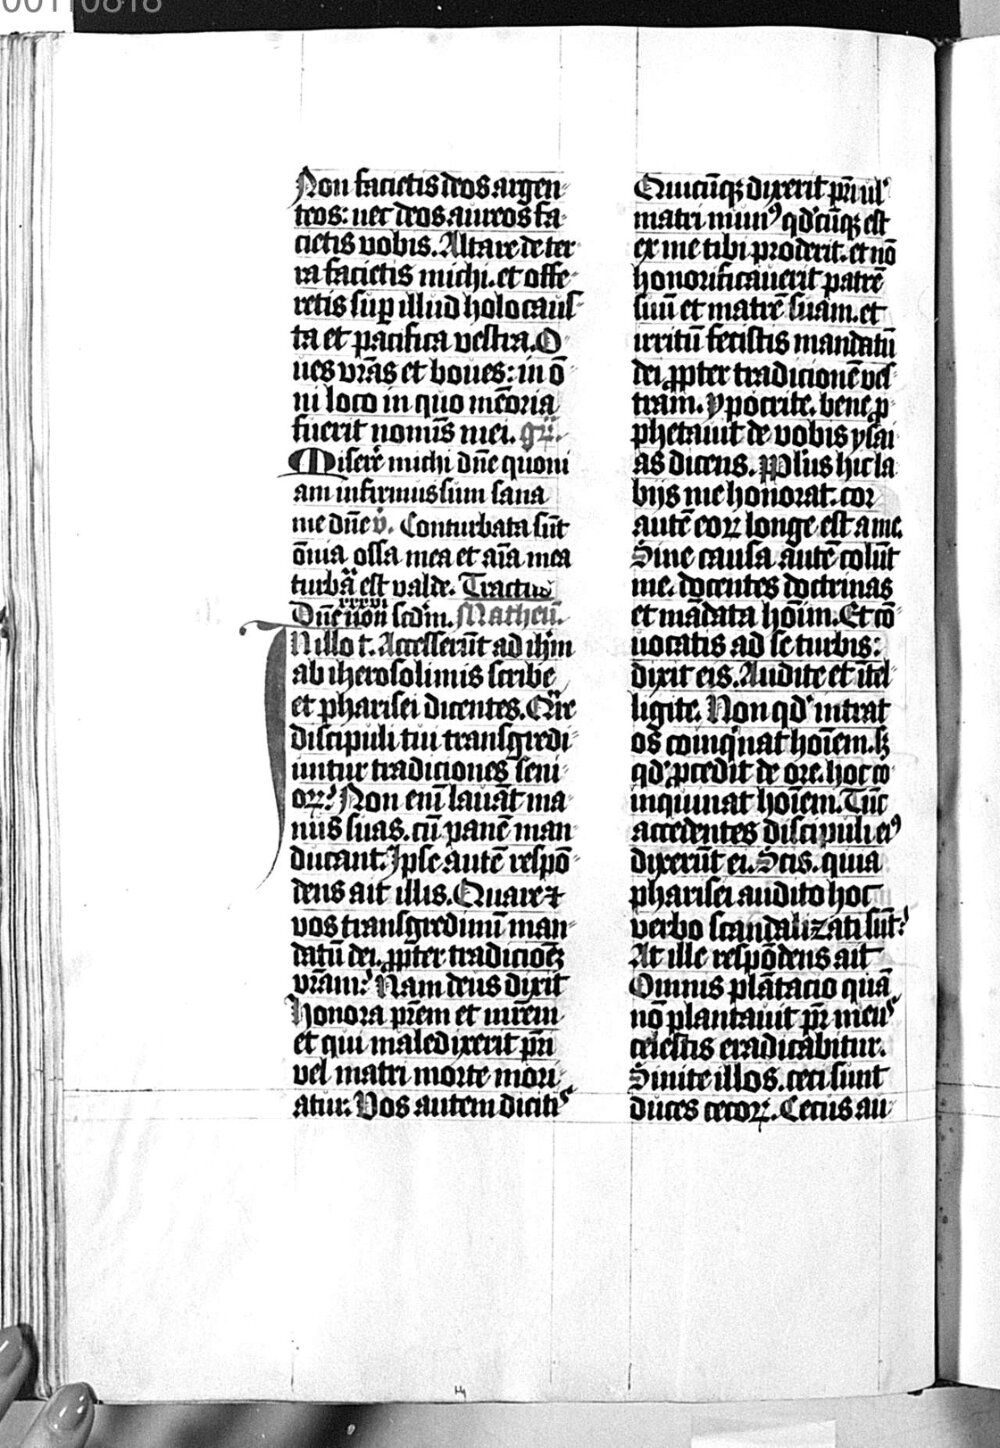 00110818
Non facietis deos argen-
teos: nec deos aureos fa-
cietis vobis. Altare de ter-
ra facietis michi. et offe-
retis sup illud holocaus-
ta et pacifica vestra. O-
ues vr̄as et boues: in ō-
ni loco in quo mēoria
fuerit nomīs mei. gr̄.
Miserēr michi dn̄e quoni-
am infirmus sum sana
me dn̄e v̄. Conturbata sūt
ōnia ossa mea et aīa mea
turbᵃ est valde. Tractus
Dn̄e non scdm̄. Matheū.
IN illo t. Accesserūt ad ih̄m
ab iherosolimis scribe
et pharisei dicentes. Qᵃre
discipuli tui transgredi-
untur tradiciones seni-
oꝝ? Non enī lauāt ma-
nus suas. cū panē man-
ducant. Ipse autē respō-
dens ait illis. Quare ⁊
vos transgredimī man-
datū dei. ꝓpter tradicioēꝫ
vr̄am? Nam deus dixit
Honora pr̄em et mr̄em
et qui maledixerit pr̄i
vel matri morte mori-
atur. Vos autem dicitꝰ
Quicūqꝫ dixerit pr̄i ul'
matri munꝰ qd'cūqꝫ est
ex me tibi proderit. et nō
honorificauerit patrē
suū et matrē suam. et
irritū fecistis mandatū
dei ꝓpter tradicionē ves-
tram. ypocrite. bene ꝓ-
phetauit de vobis ysai-
as dicens. Pplūs hic la-
bijs me honorat. cor
autē eoꝝ longe est a me.
Sine causa autē colūt
me. docentes doctrinas
et mādata hoīm. Et cō-
uocatis ad se turbis:
dixit eis. Audite et ītel-
ligite. Non qd' intrat
os coinqᵘnat hoīem. sꝫ
qd' ꝓcedit de ore. hoc co-
inquinat hoīem. Tūc
accedentes discipuli eiꝰ
dixerūt ei. Scis. quia
pharisei audito hoc
verbo scandalizati sūt?
At ille respōdens ait
Omnis plātacio quā
nō plantauit pr̄ meus
celestis eradicabitur.
Sinite illos. ceci sunt
duces cecoꝝ. Cecus au-